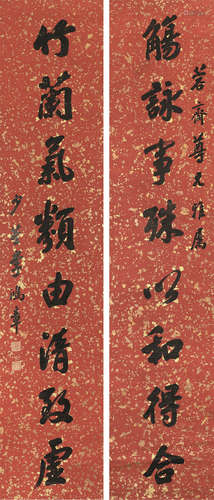 觴詠事殊以和得合
若齋尊兄雅属
竹蘭氣類由清致虛
少荃李鴻章